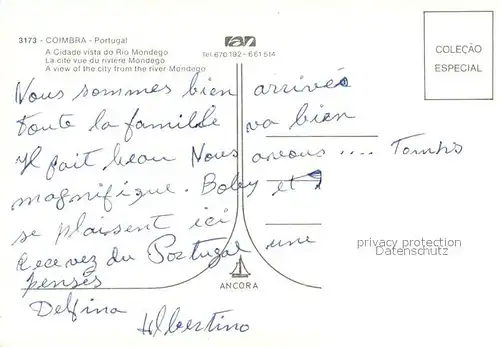 3173 - COIMBRA - Portugal
A Cidade vista do Rio Mondego
La cité vue du rivière Mondego
A view of the city from the river Mondego
Tel. 670 192 - 66 15 14
COLEÇÃO
ESPECIAL
Nous sommes bien arrivés
toute la famillde va bien
Il fait beau Nous avons .... Temps
magnifique. Boby et
se plaisent ici
Recevez du Portugal une
pensés
Delfina
Albertino
privacy protection
Datenschutz
ANCORA